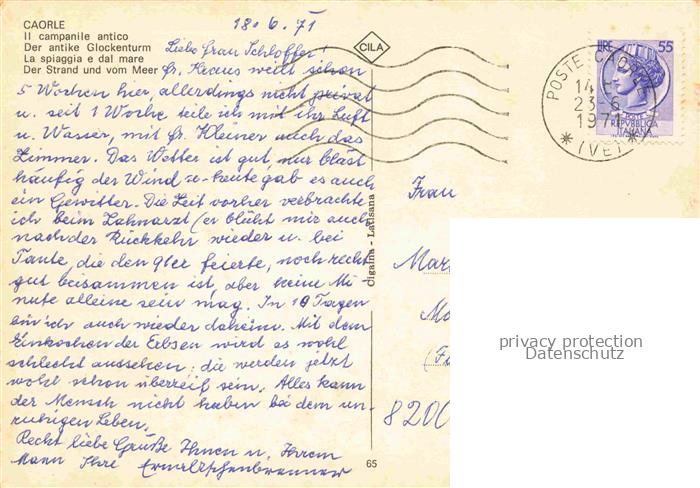 CAORLE
Il campanile antico
Der antike Glockenturm
La spiaggia e dal mare
Der Strand und vom Meer
18.6.71
Liebe Frau Schloffer!
Fr. Kraus weilt schon
5 Wochen hier, allerdings nicht privat
u. seit 1 Woche teile ich mit ihr Luft
u. Wasser, mit Fr. Kleiner auch das
Zimmer. Das Wetter ist gut nur bläst
häufig der Wind u. heute gab es auch
ein Gewitter. Die Zeit vorher verbrachte
ich beim Zahnarzt (er blüht mir auch
nach der Rückkehr wieder u. bei
Tante, die den 91er feierte, noch recht
gut beisammen ist, aber keine Mi-
nute alleine sein mag. In 10 Tagen
bin ich auch wieder daheim. Mit dem
Einkochen der Erbsen wird es wohl
schlecht aussehen; die werden jetzt
wohl schon überreif sein. Alles kann
der Mensch nicht haben bei dem un-
ruhigen Leben.
Recht liebe Grüße Ihnen u. Ihrem
Mann Ihre
CILA
Cigaina - Latisana
65
POSTE CAORLE
14
23-6
1971
(VE)
LIRE 55
POSTE
REPVBBLICA
ITALIANA
Frau
Mar
Mo
8200
privacy protection
Datenschutz